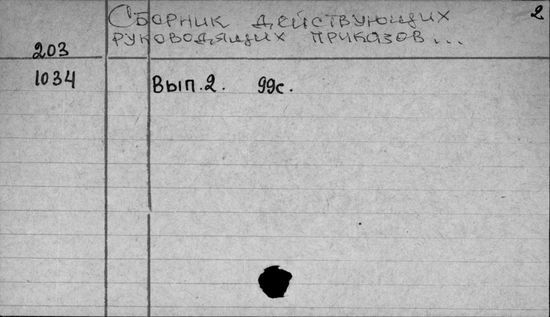 2
Сборник действующих
руководящих приказов...
203
1034 Вып. 2. 99с.